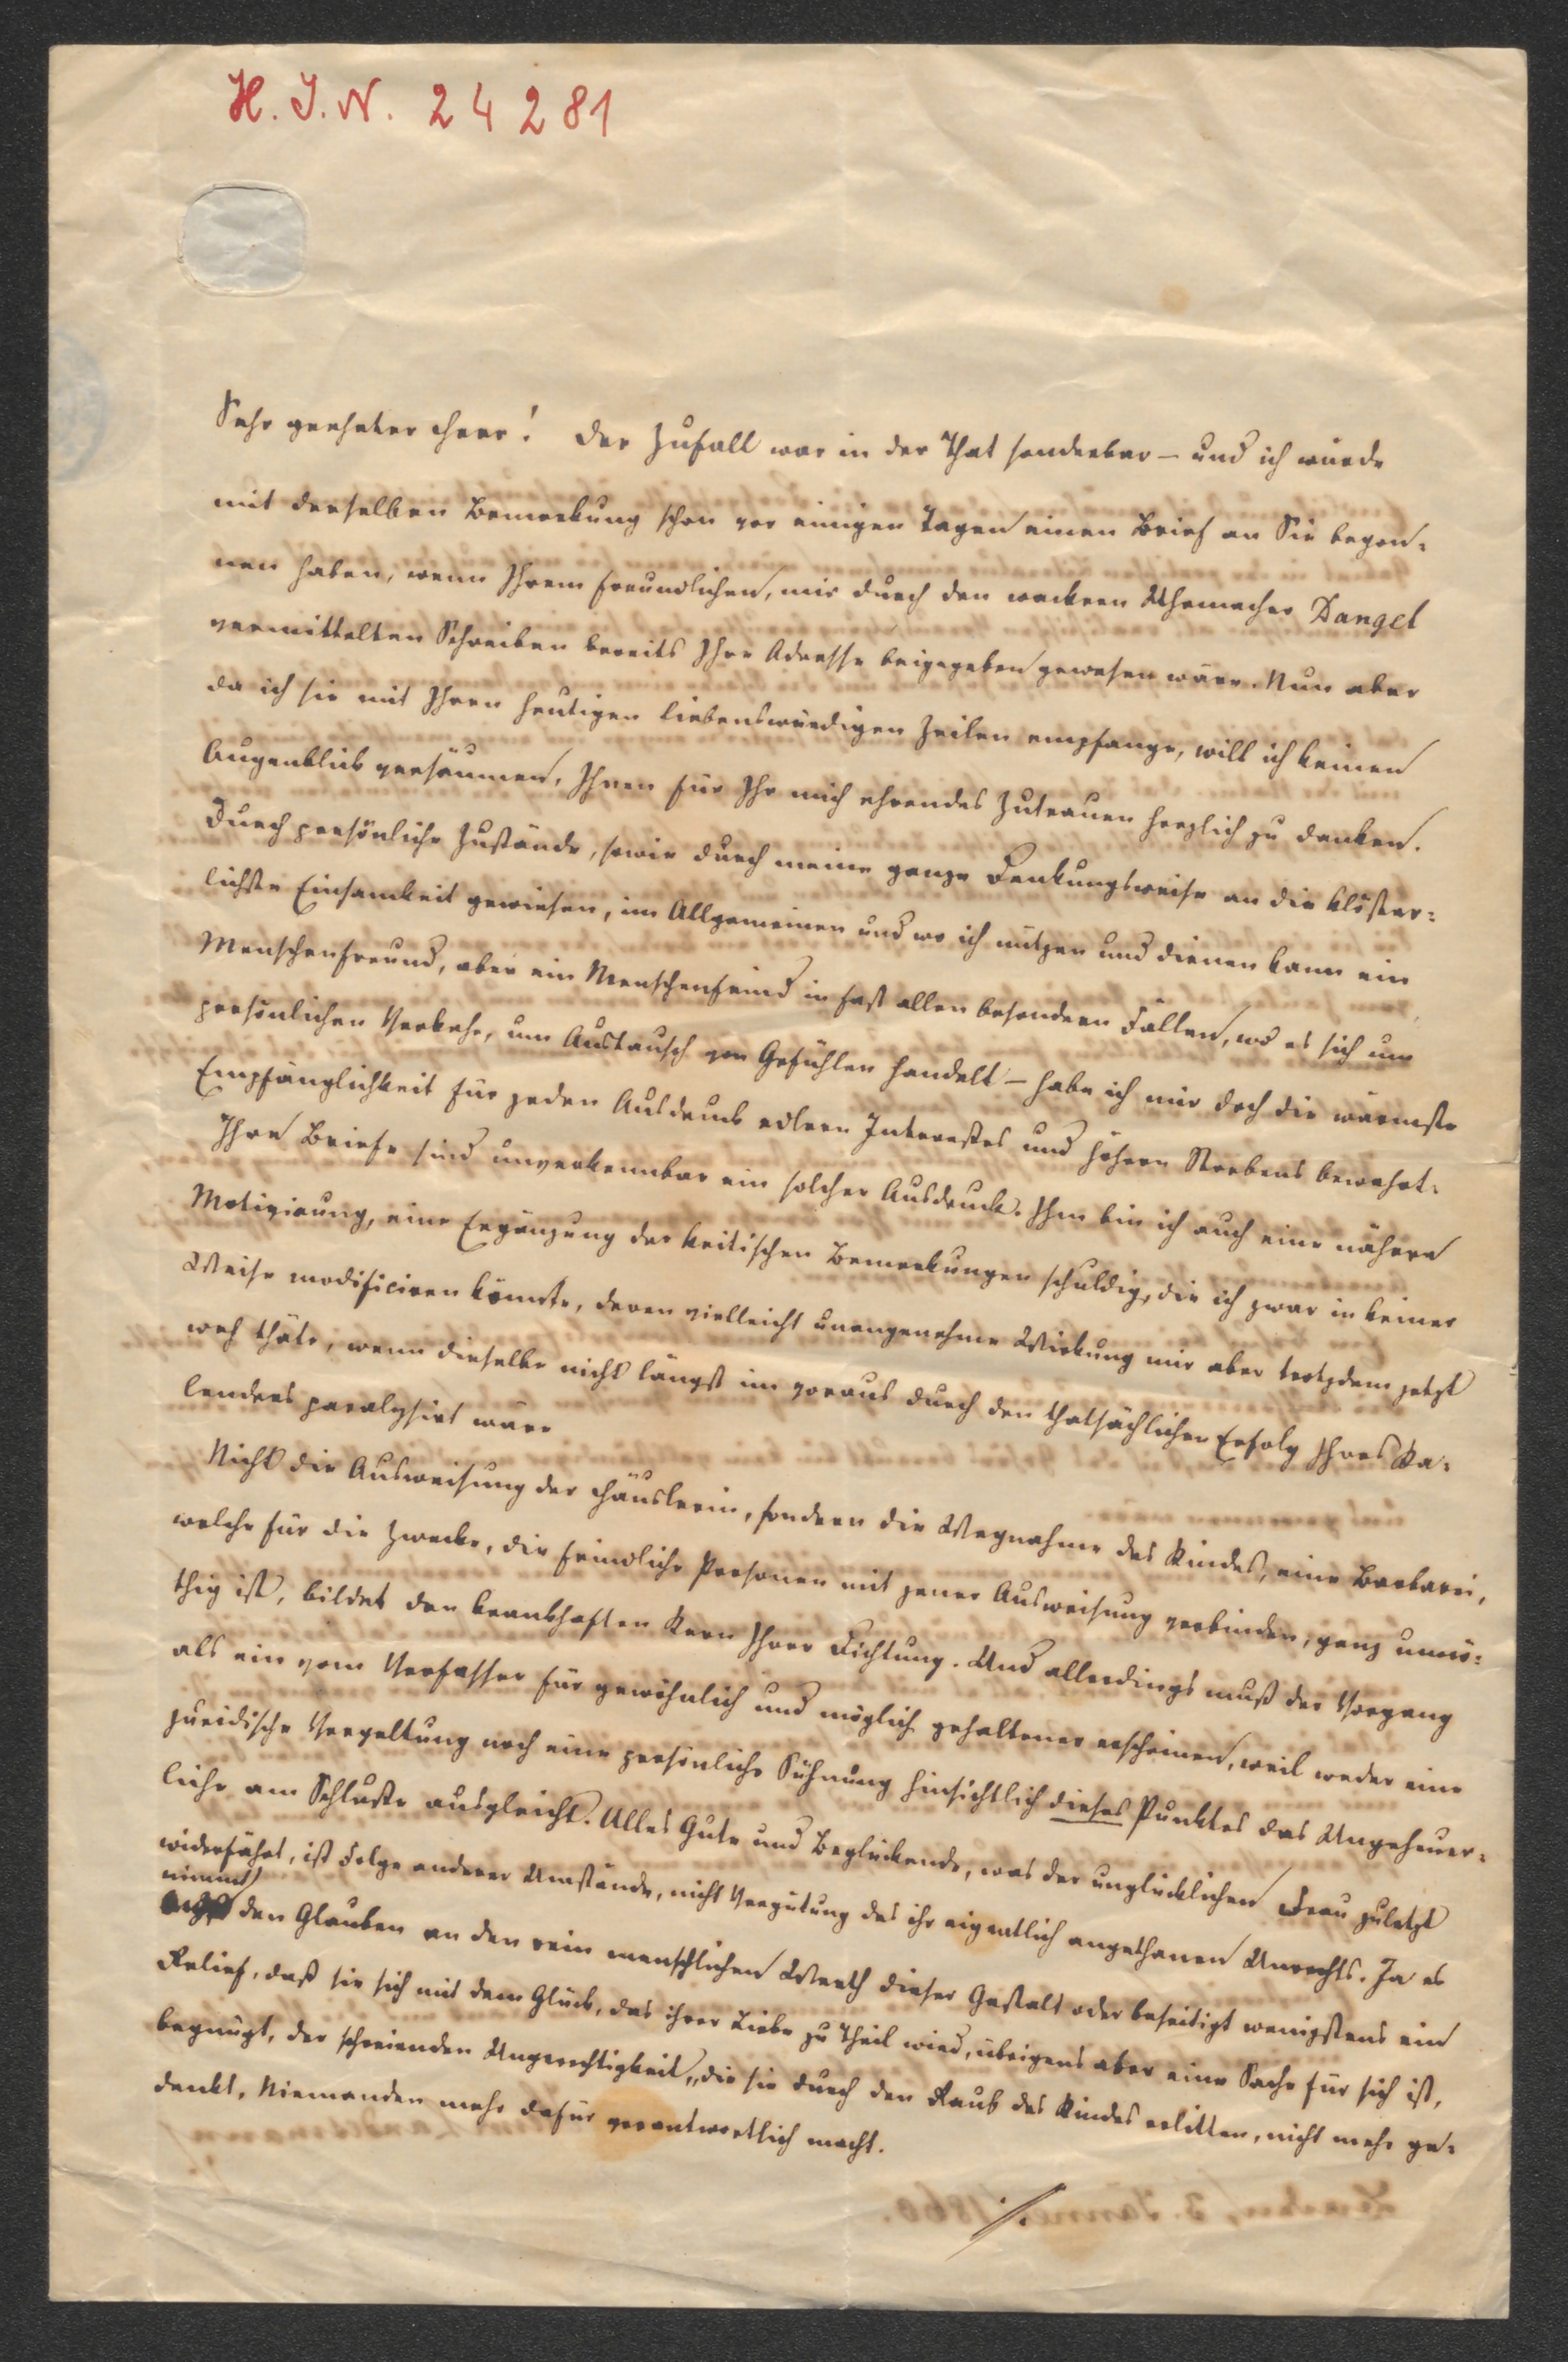 H. I. N. 24281
Sehr geehrter Herr! Der Zufall war in der That sonderbar – und ich würde
mit derselben Bemerkung schon vor einigen Tagen einen Brief an Sie begon-
nen haben, wenn Ihrem freundlichen, mir durch den wackern Uhrmacher Dangel
vermittelten Schreiben bereits Ihre Adresse beigegeben gewesen wäre. Nun aber
da ich sie mit Ihren heutigen liebenswürdigen Zeilen empfange, will ich keinen
Augenblick versäumen, Ihnen für Ihr mich ehrendes Zutrauen herzlich zu danken.
Durch persönliche Zustände, sowie durch meine ganze Denkungsweise an die klöster-
lichste Einsamkeit gewiesen, im Allgemeinen und wo ich nützen und dienen kann ein
Menschenfreund, aber ein Menschenfeind in fast allen besondern Fällen, wo es sich um
persönlichen Verkehr, um Austausch von Gefühlen handelt – habe ich mir doch die wärmste
Empfänglichkeit für jeden Ausdruck edlern Interesses und höhern Strebens bewahrt.
Ihre Briefe sind unverkennbar ein solcher Ausdruck. Ihm bin ich auch eine nähere
Motivirung, eine Ergänzung der kritischen Bemerkungen schuldig, die ich zwar in keiner
Weise modificiren könnte, deren vielleicht unangenehme Wirkung mir aber trotzdem jetzt
weh thäte, wenn dieselbe nicht längst im voraus durch den thatsächlichen Erfolg Ihres Ka-
lenders paralysirt wäre
Nicht die Ausweisung der Häuslerin, sondern die Wegnahme des Kindes, eine Barbarei,
welche für die Zwecke, die feindliche Personen mit jener Ausweisung verbinden, ganz unnö-
thig ist, bildet den krankhaften Kern Ihrer Dichtung. Und allerdings muß der Vorgang
als ein vom Verfasser für gewöhnlich und möglich gehaltener erscheinen, weil weder eine
juridische Vergeltung noch eine persönliche Sühnung hinsichtlich dieses Punktes das Ungeheuer-
liche am Schlusse ausgleicht. Alles Gute und Beglückende, was der unglücklichen Frau zuletzt
widerfährt, ist Folge anderer Umstände, nicht Vergütung des ihr eigentlich angethanen Unrechts. Ja es
nimmt
den Glauben an den rein menschlichen Werth dieser Gestalt oder beseitigt wenigstens ein
Relief, daß sie sich mit dem Glück, das ihrer Liebe zu Theil wird, übrigens aber eine Sache für sich ist,
begnügt, der schreienden Ungerechtigkeit, die sie durch den Raub des Kindes erlitten, nicht mehr ge-
denkt, Niemanden mehr dafür verantwortlich macht.
./.